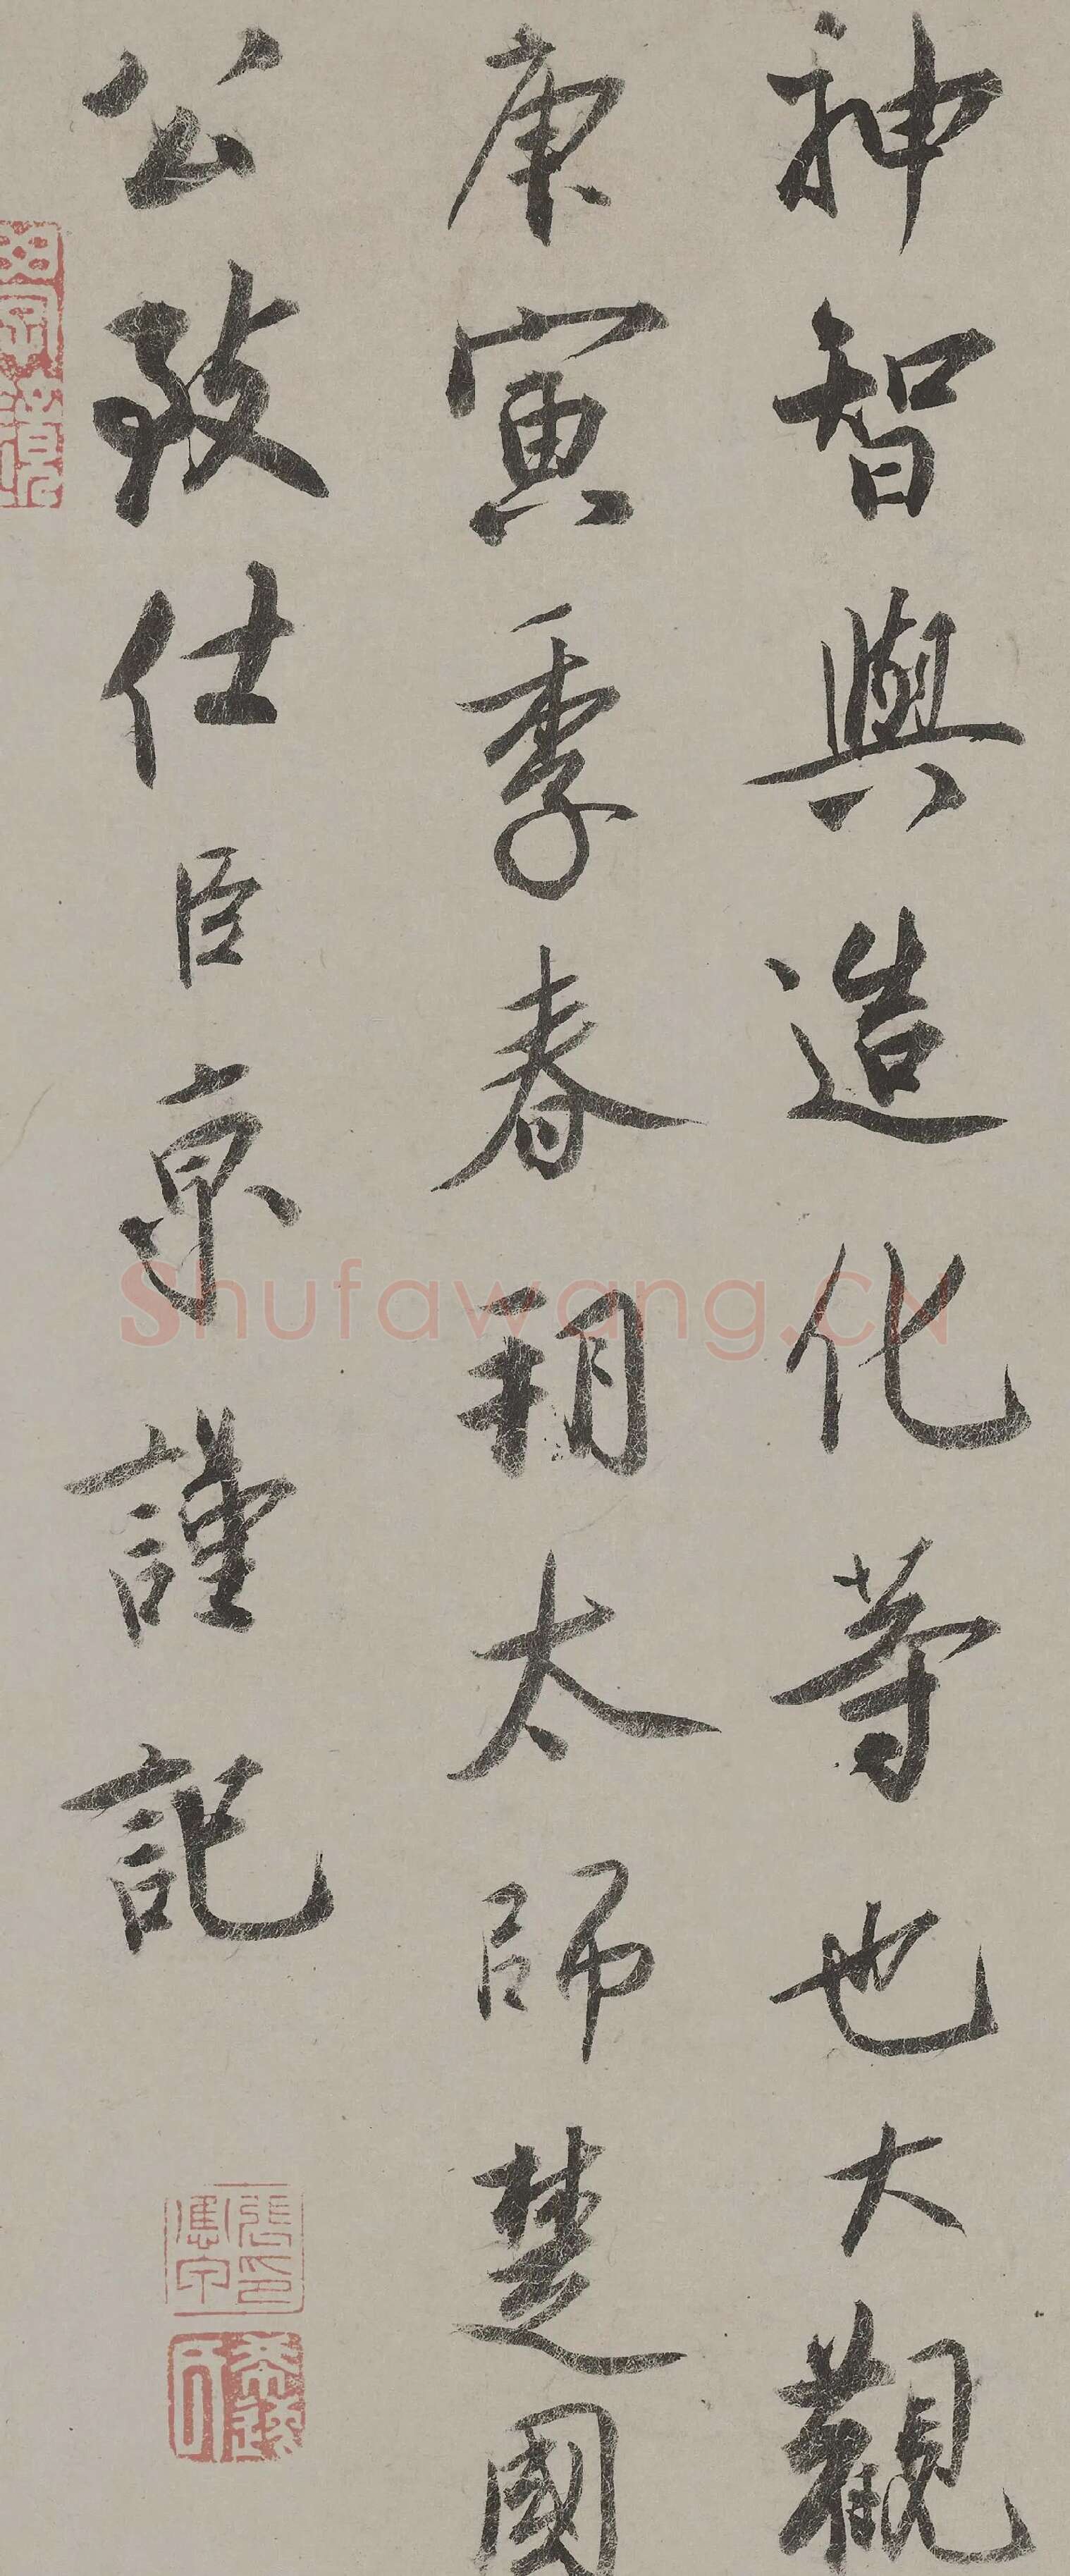 神智與造化等也大觀
庚寅季春朔太師楚國
公致仕臣京謹記
Shufawang.CN